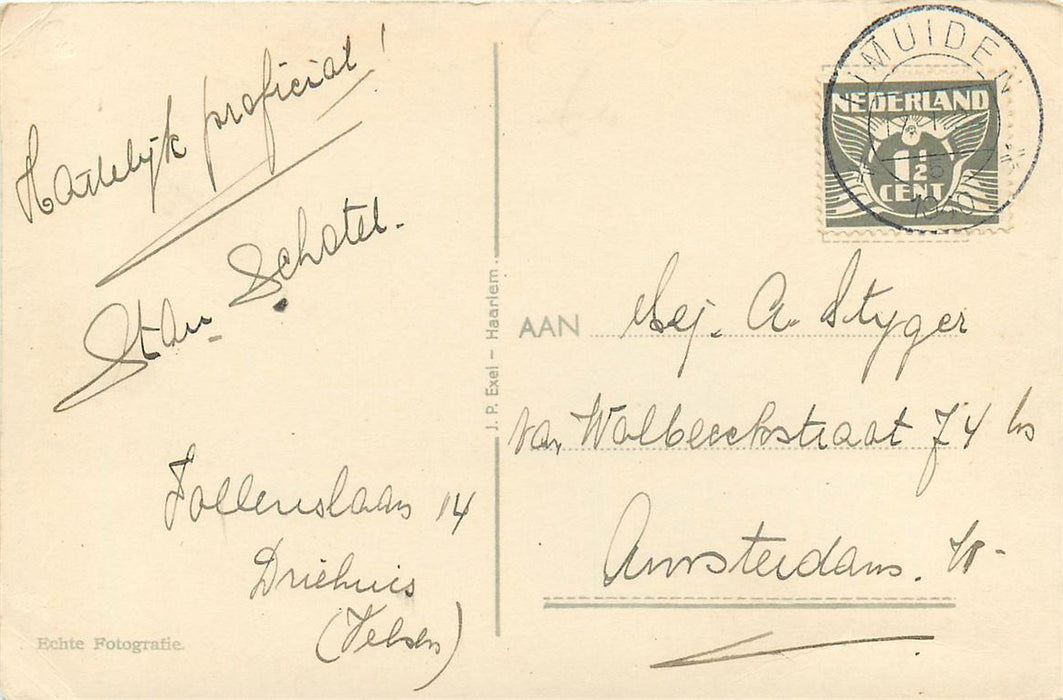 Hartelijk proficiat!
Stan Schotel.
Tollenslaan 14
Driehuis
(Velsen)
Echte Fotografie.
J. P. Exel – Haarlem.
IJMUIDEN
1940
NEDERLAND
1½
CENT
AAN Mej. A. Styger
van Walbeeckstraat 74 hs
Amsterdam. W-